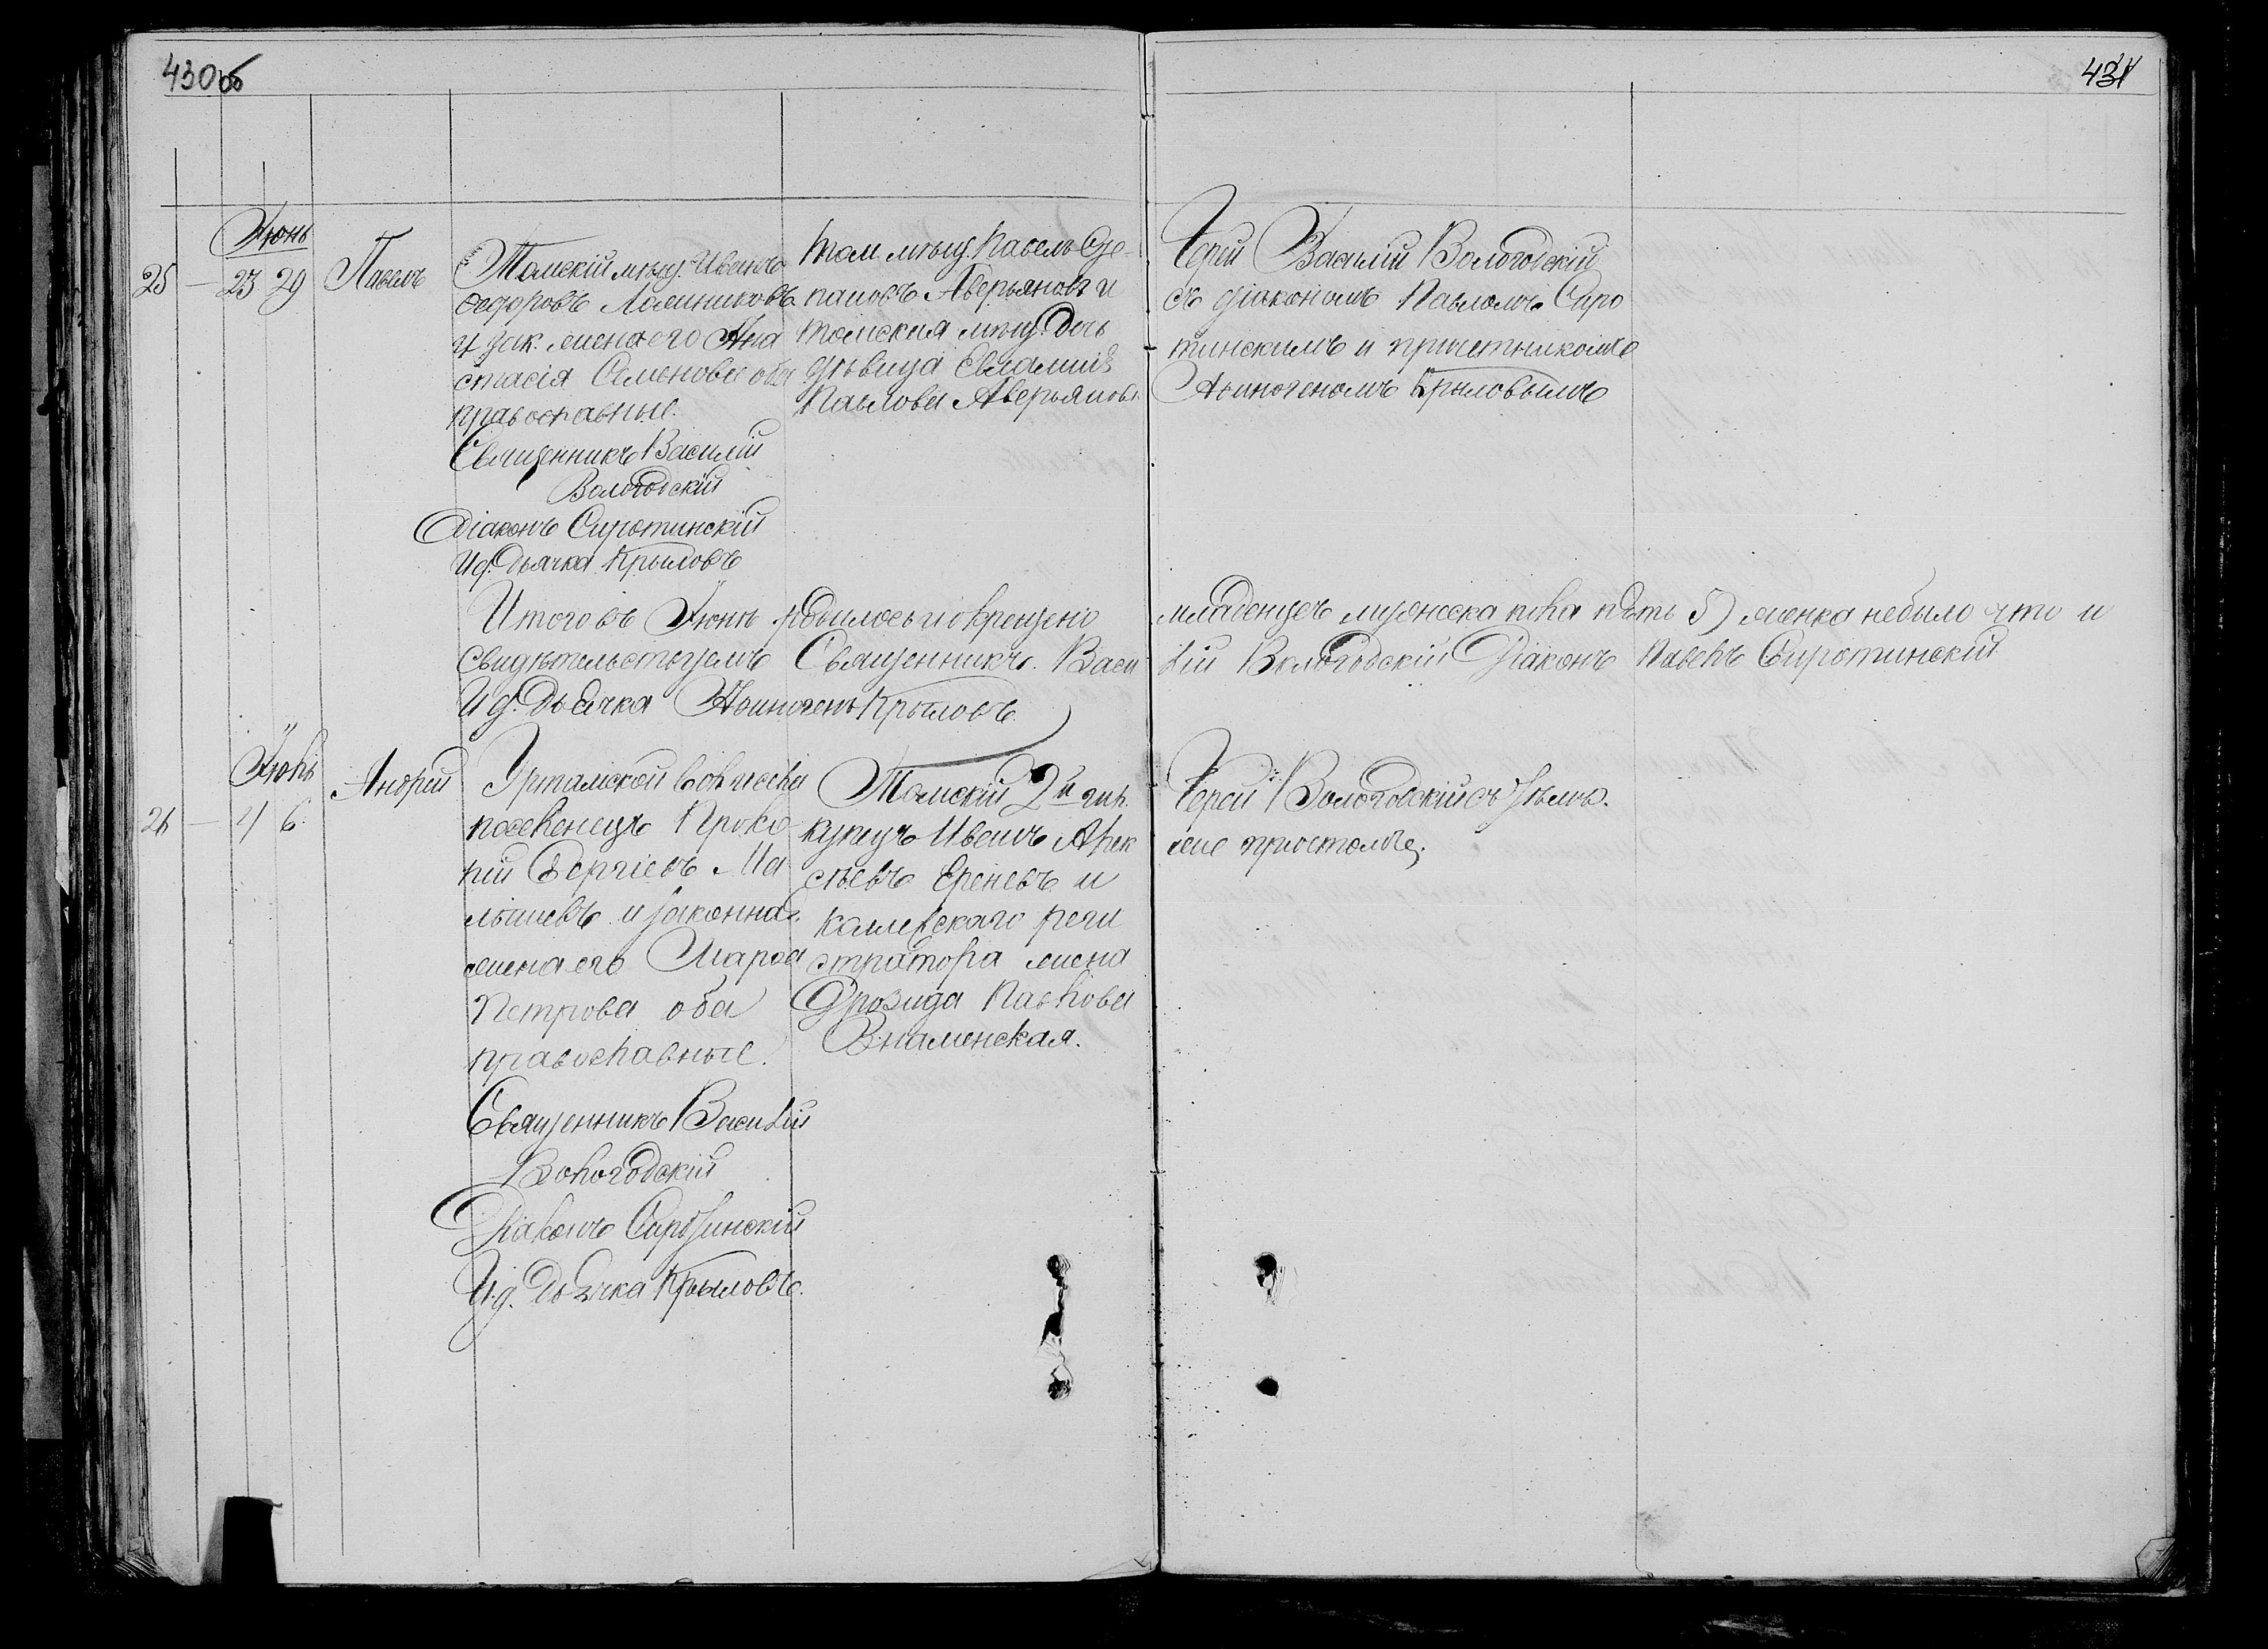 430об
431
Июнь
25 — 23 29 Павелъ
Томскій мѣщ. Иванъ
Ѳедоровъ
и зак. жена его Ана
стасія Семенова оба
православные.
Священникъ Василій
Вологодскій
Діаконъ Сиротинскій
И д. Дьячка Крыловъ
Том. мѣщ. Павелъ Сте-
пановъ Аверьяновъ и
томская мѣщ. дочь
дѣвица Евлампія
Павлова Аверьянова
Іерей Василій Вологодскій
съ діакономъ Павломъ Сиро
тинскимъ и причетникомъ
Аѳиногеномъ Крыловымъ
Итого въ Іюнѣ родилось и окрещено младенцевъ мужеска пола пять 5) женска небыло что и
свидѣтельствуемъ Священникъ Васи лій Вологодскій Діаконъ Павелъ Сиротинскій
И д. Дьячка Аѳиногенъ Крыловъ
Іюль
26 — 4 6 Андрей
Уртамской волости
поселенецъ Проко
пій Сергіевъ Ма
лышевъ и законная
жена его Марѳа
Петрова оба
православные.
Священникъ Василій
Вологодскій
Діаконъ Сиротинскій
И. д. Дьячка Крыловъ.
Томскій 2й гил.
купецъ Иванъ Алек
сѣевъ Ереневъ и
Коллежскаго реги
стратора жена
Дрозида Павлова
Знаменская.
Іерей Вологодскій съ тѣмъ
же причтомъ.